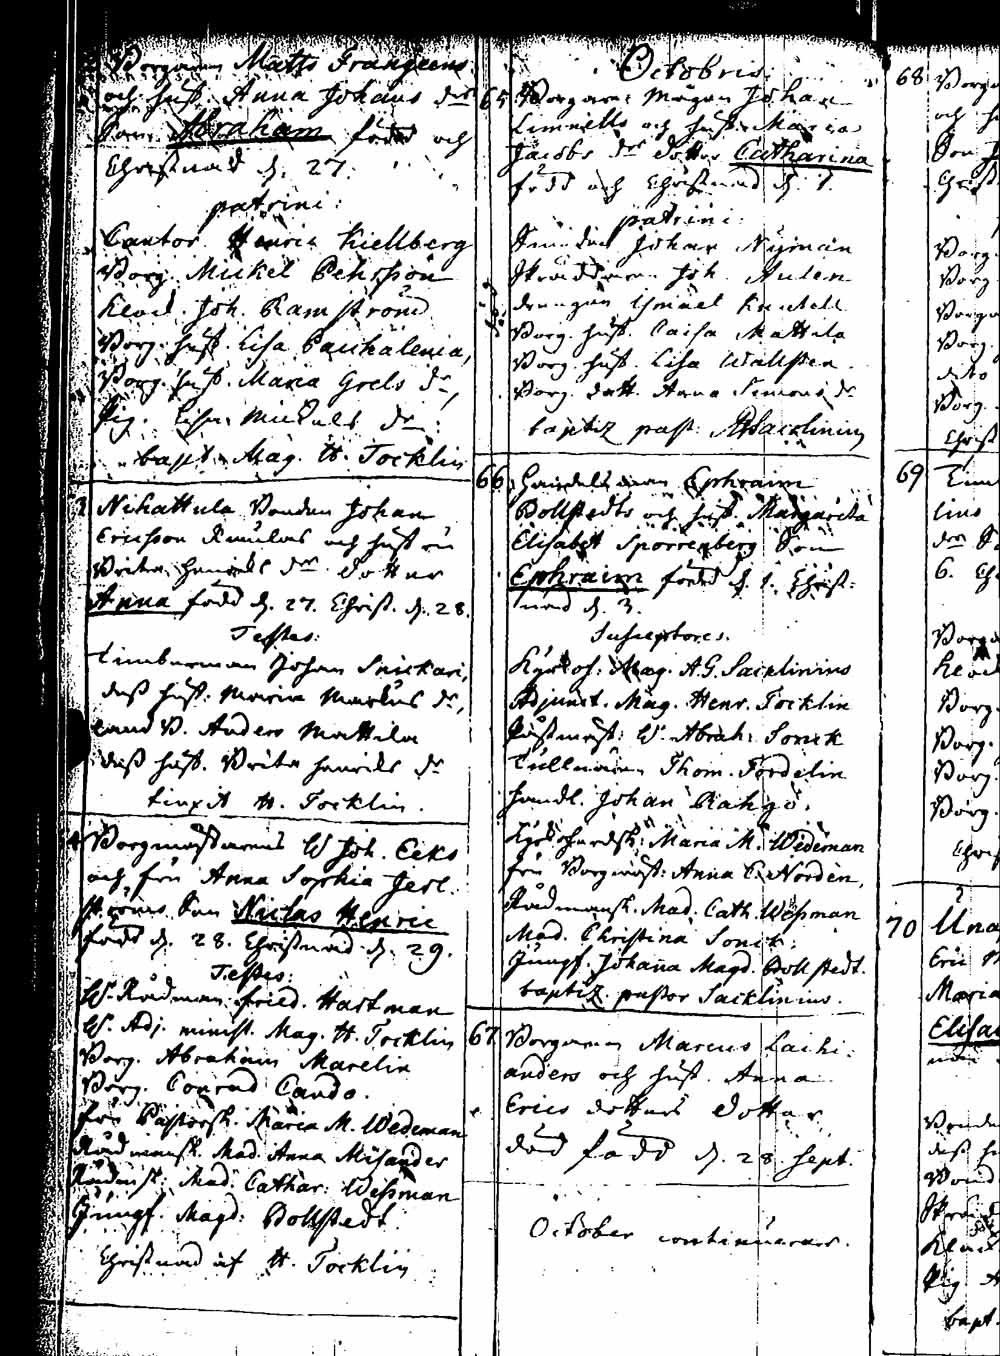 Borgaren Matts Frangeens
och hust. Anna Johans dr
Son Abraham född och
Christnad d. 27.
patrini:
Cantor Henric Kiellberg
Borg. Mickel Pehrsson
Klock. Joh. Ramström
Borg. hust. Lisa Paukalenia,
Borg. hust. Maria Grels dr,
Pig. Lisa Mickels dr.
bapt. Mag. H. Tocklin
Nihattula Bonden Johan
Ericsson och hustrus
Brita Henrics dr dotter
Anna född d. 27. Christ. d. 28.
Testes:
Timberman Johan Snickari,
dess hust. Maria Markus dr,
Land B. Anders Mattila
dess hust. Brita Henrics dr
tinxit H. Tocklin.
Borgmästarens W Joh. Eeks
och fru Anna Sophia Jerl.
ströms Son Niclas Henric
född d. 28. Christnad d. 29.
Testes:
W. Rådman Fried. Hartman
W. Adj. minist. Mag. H. Tocklin
Borg. Abraham Marelin
Borg. Conrad Cando.
fru Pastorsk. Maria M. Wedeman
Rådmansk. Mad. Anna Misander
Rådmsk. Mad. Cathar. Wessman
Jungf. Magd. Bollstedt
Christnad af H. Tocklin
Octobris.
65. Borgare Mågen Johan
Limnells och hust. Maria
Jacobs dr dotter Catharina
född och Christnad d. 1.
patrini:
Smeden Johan Nyman
Skräddaren Joh. Aulen
drengen Ismael Knutell
Borg. hust. Caisa Mattila
Borg. hust. Lisa Wallsten
Borg. dott. Anna Simons dr
baptiz past. Sacklinius
66. Handelsman Ephraim
Bollstedts och hust. Margareta
Elisabet Sporrenberg Son
Ephraim född d. 1. Christ:
nad d. 3.
Susceptores.
Kyrkoh. Mag. A.G. Sacklinius
Adjunct. Mag. Henr. Tocklin
Postmäst: W. Abrah. Sonck
Tullnären Thom. Fordelin
Handl. Johan Rahgo.
Kyrkoherdsk: Maria M. Wedeman
fru Borgmäst: Anna C. Norden,
Rådmansk. Mad. Cath. Wessman
Mad. Christina Sonck.
Jungf. Johana Magd. Bollstedt.
baptiz. pastor Sacklinius.
67 Borgaren Marcus Lachi:
anders och hust. Anna
Erics dotters dotter
död född d. 28 Sept.
October continuerar.
68
Borg
och h
Son J
Christ
Borg.
Borg
Borga
Borg.
dito
Borg.
Christ
69
lius
dr
6. Ch
Borg
Klock
Borg.
Borg.
Borg.
Borg.
Chris
70 Una
Eric
Maria
Elisa
Bonde
dess h
Bond
Skräd
Klock
Pig A
bapt.